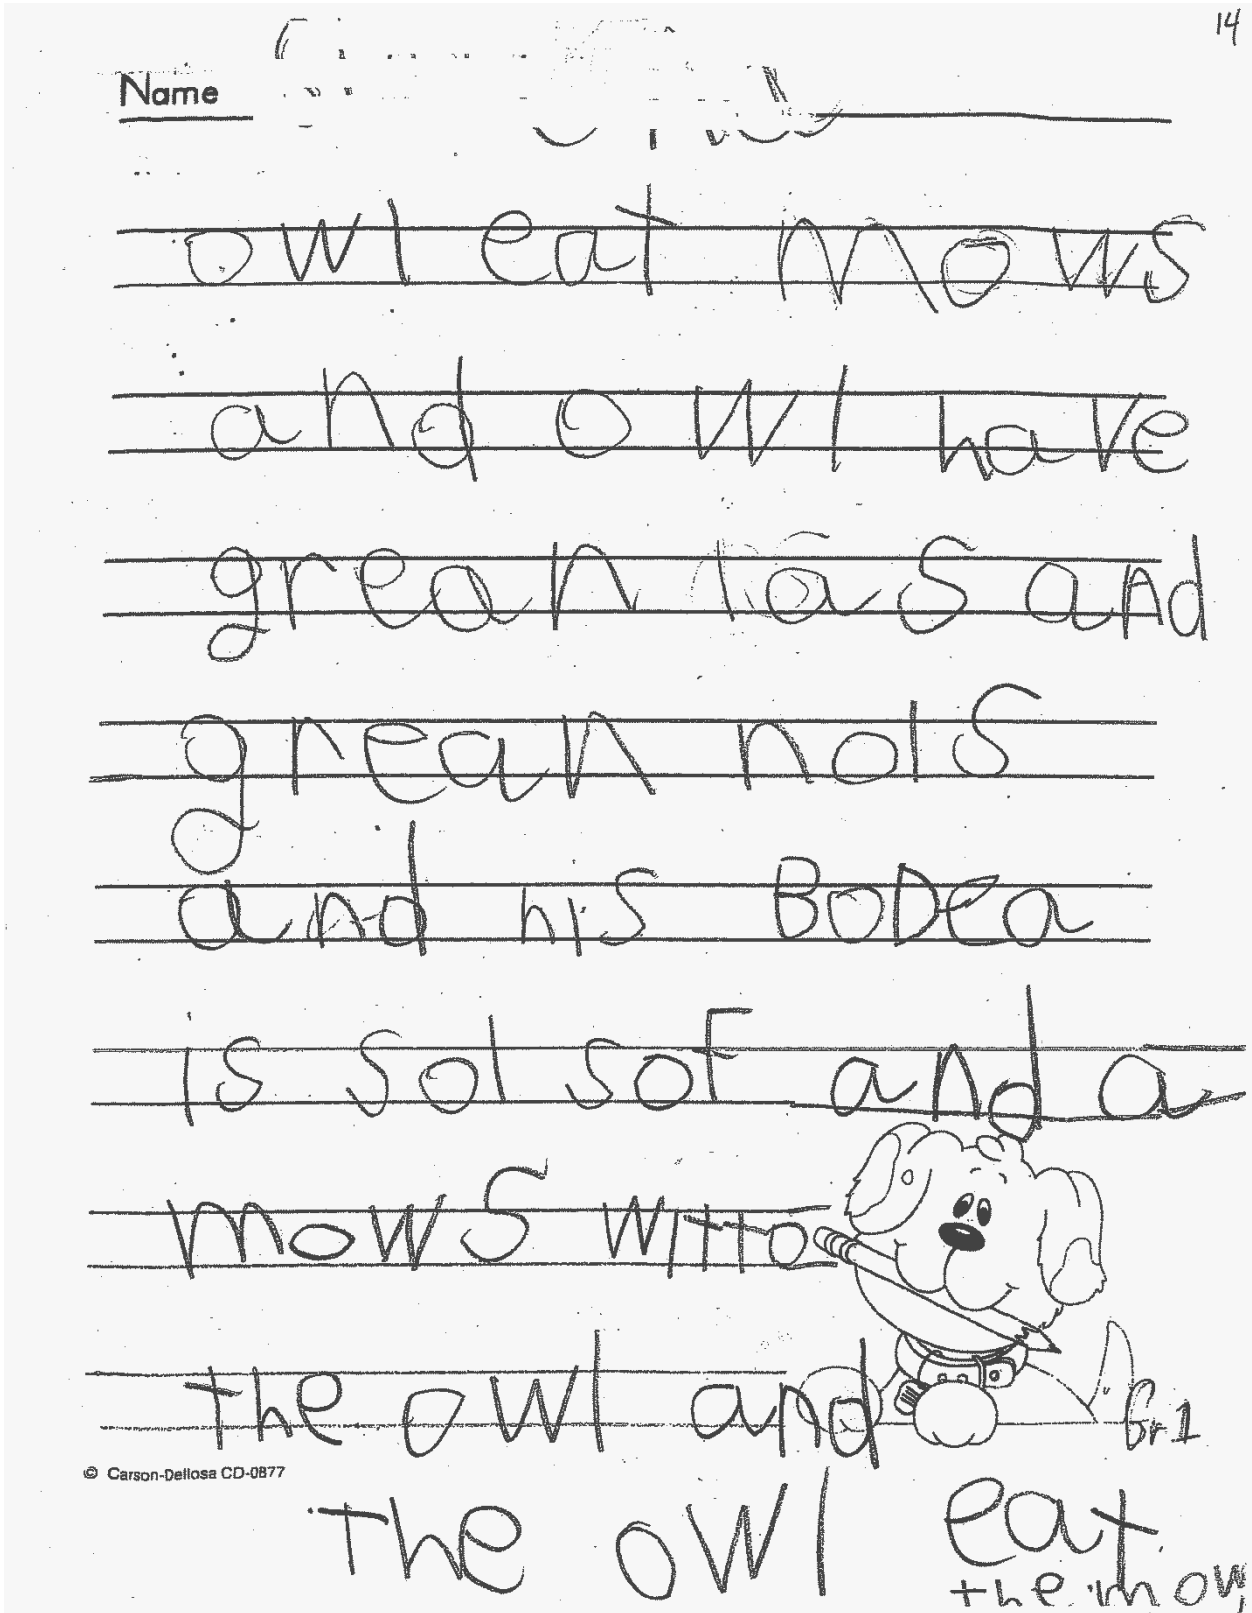 14
Name
owl eat mows
and owl have
grean las and
grean nols
and his BoDea
is sol sof and a
mows witto
the owl and
Gr1
© Carson-Dellosa CD-0877
the owl eat
the mow